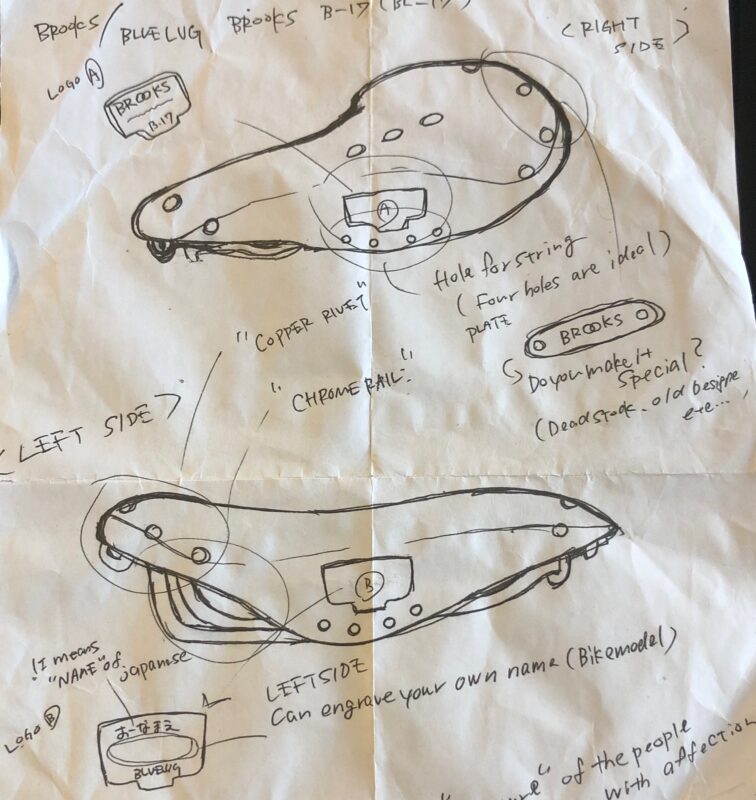 BROOKS / BLUE LUG BROOKS B-17 (BL-17)
<RIGHT
SIDE>
LOGO A
BROOKS
B-17
A
Hole for string
(Four holes are ideal)
PLATE
BROOKS
Do you make it
special?
(Deadstock, old
etc...)
"COPPER RIVET"
"CHROME RAIL"
<LEFT SIDE>
B
It means
"NAME" of
Japanese
LOGO B
おーなまえ
BLUELUG
LEFT SIDE
Can engrave your own name (Bikemodel)
of the people
with affection